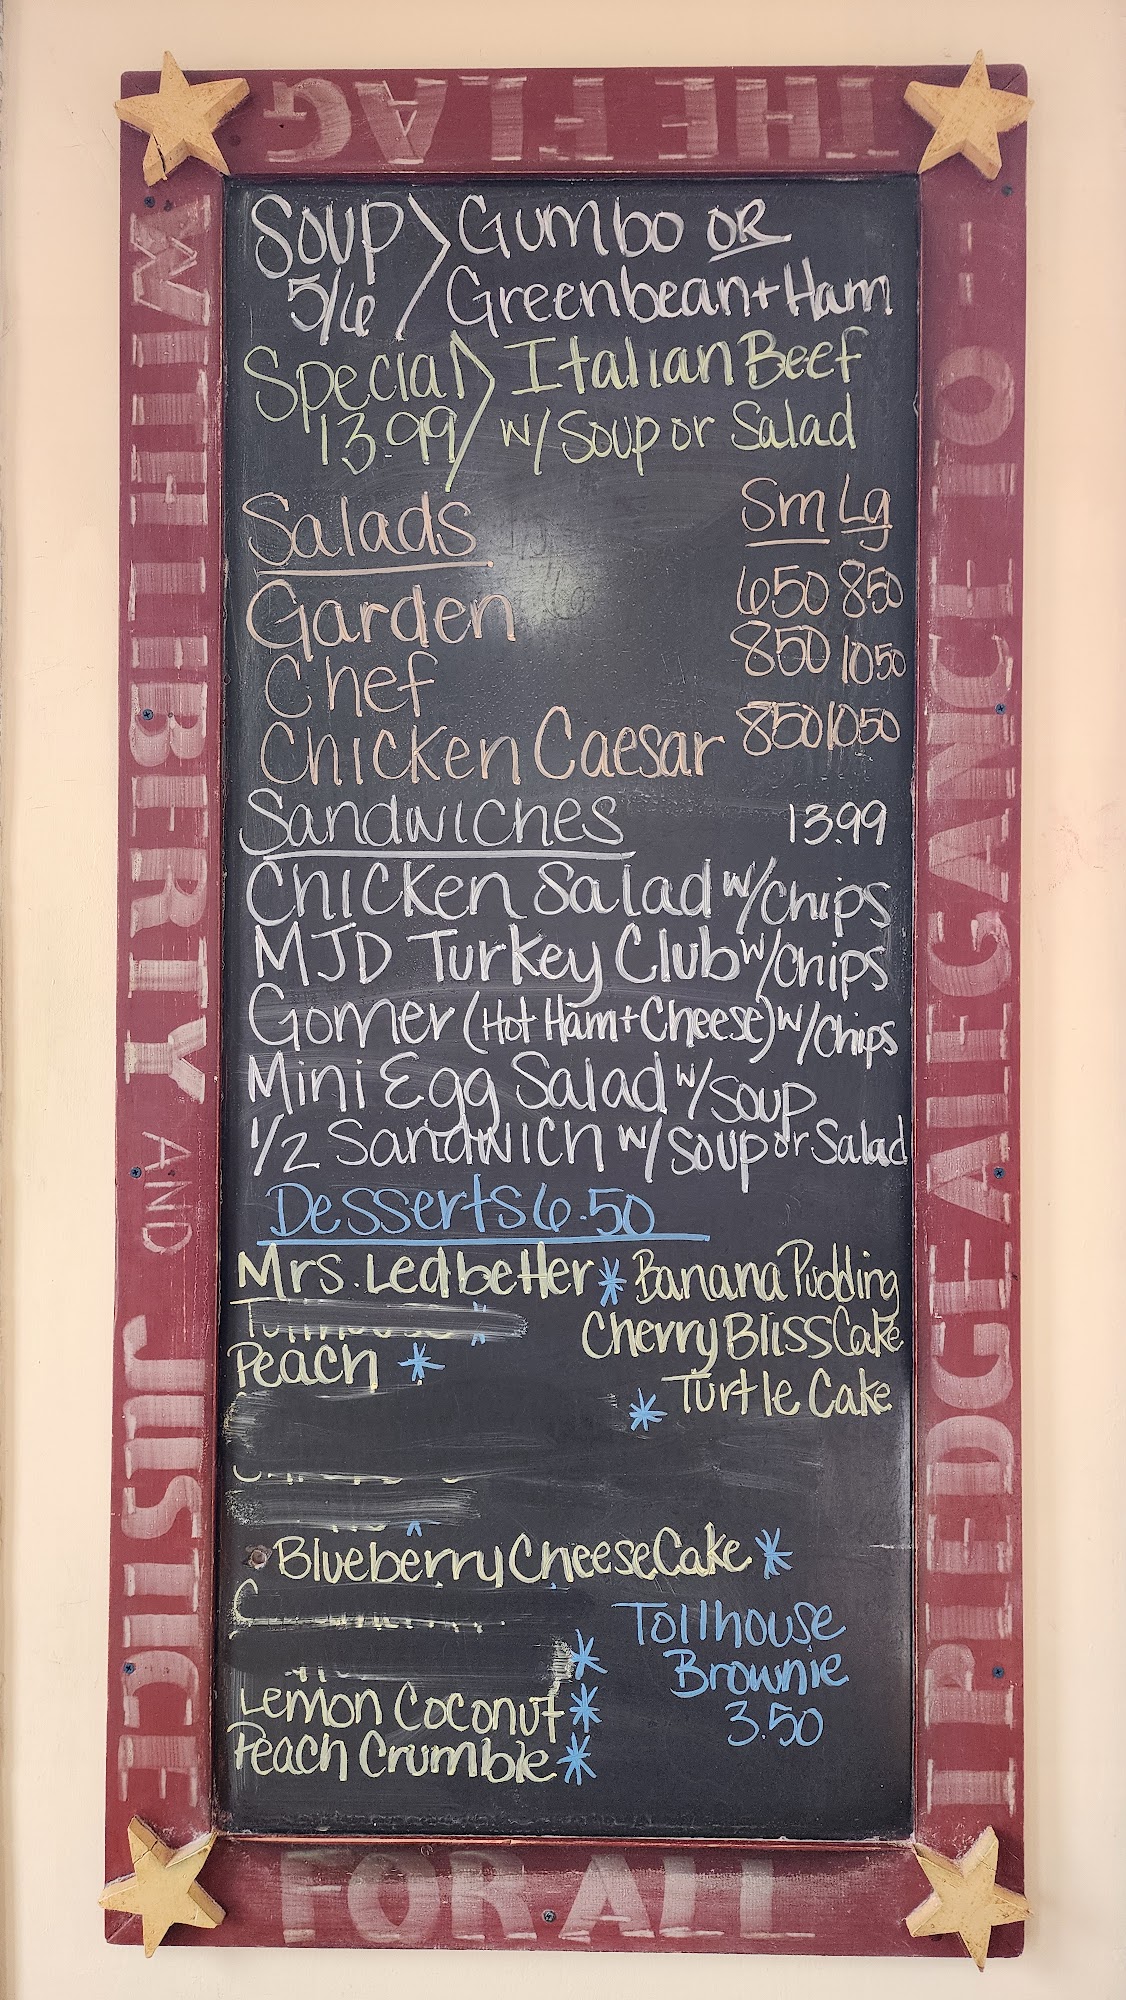 THE FLAG
WITH LIBERTY AND JUSTICE
FOR ALL
I PLEDGE ALLEGIANCE TO -
Soup > Gumbo OR
5/6 Greenbean + Ham
Special > Italian Beef
13.99 w/ Soup or Salad
Salads Sm Lg
Garden 650 850
Chef 850 1050
Chicken Caesar 850 1050
Sandwiches 13.99
Chicken Salad w/ Chips
MJD Turkey Club w/ Chips
Gomer (Hot Ham + Cheese) w/ Chips
Mini Egg Salad w/ Soup
1/2 Sandwich w/ Soup or Salad
Desserts 6.50
Mrs. Ledbetter * Banana Pudding
Cherry Bliss Cake
Peach *
* Turtle Cake
Blueberry CheeseCake *
Tollhouse
Brownie
3.50
*
Lemon Coconut *
Peach Crumble *